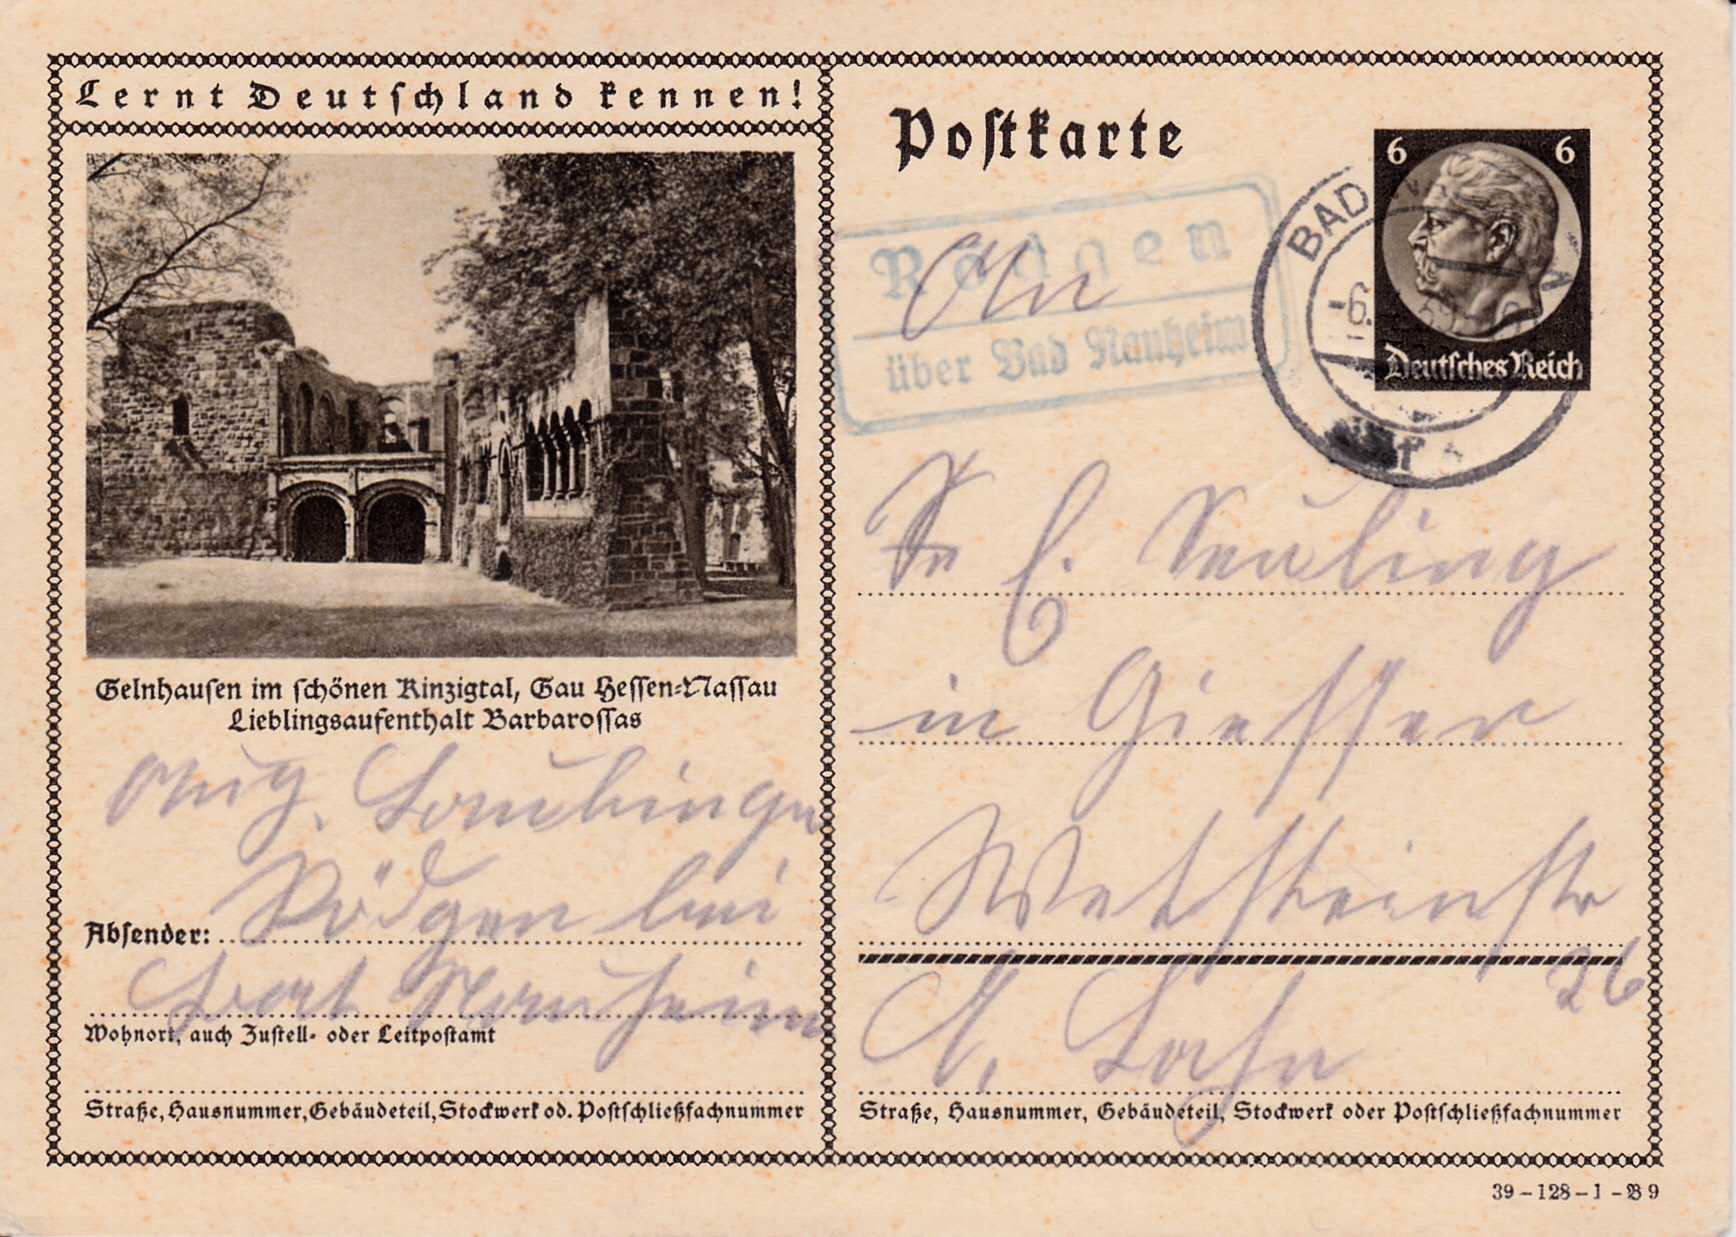 Lernt Deutschland kennen!
Gelnhausen im schönen Kinzigtal, Gau Hessen-Nassau
Lieblingsaufenthalt Barbarossas
Aug.
Rödgen bei
Absender:
Bad Nauheim
Wohnort, auch Zustell- oder Leitpostamt
Straße, Hausnummer, Gebäudeteil, Stockwerk od. Postschließfachnummer
Postkarte
6 6
Deutsches Reich
BAD
-6.
Rödgen
über Bad Nauheim
An
Fr E.
in Giessen
str
26
a. Lahn
Straße, Hausnummer, Gebäudeteil, Stockwerk oder Postschließfachnummer
39-128-1-B9